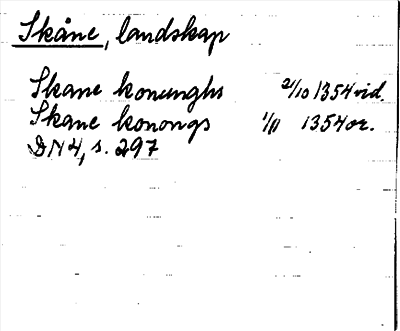 Skåne, landskap
Skane konunghs 21/10 1354 vid.
Skane konongs 1/11 1354 or.
DN 4, s. 297